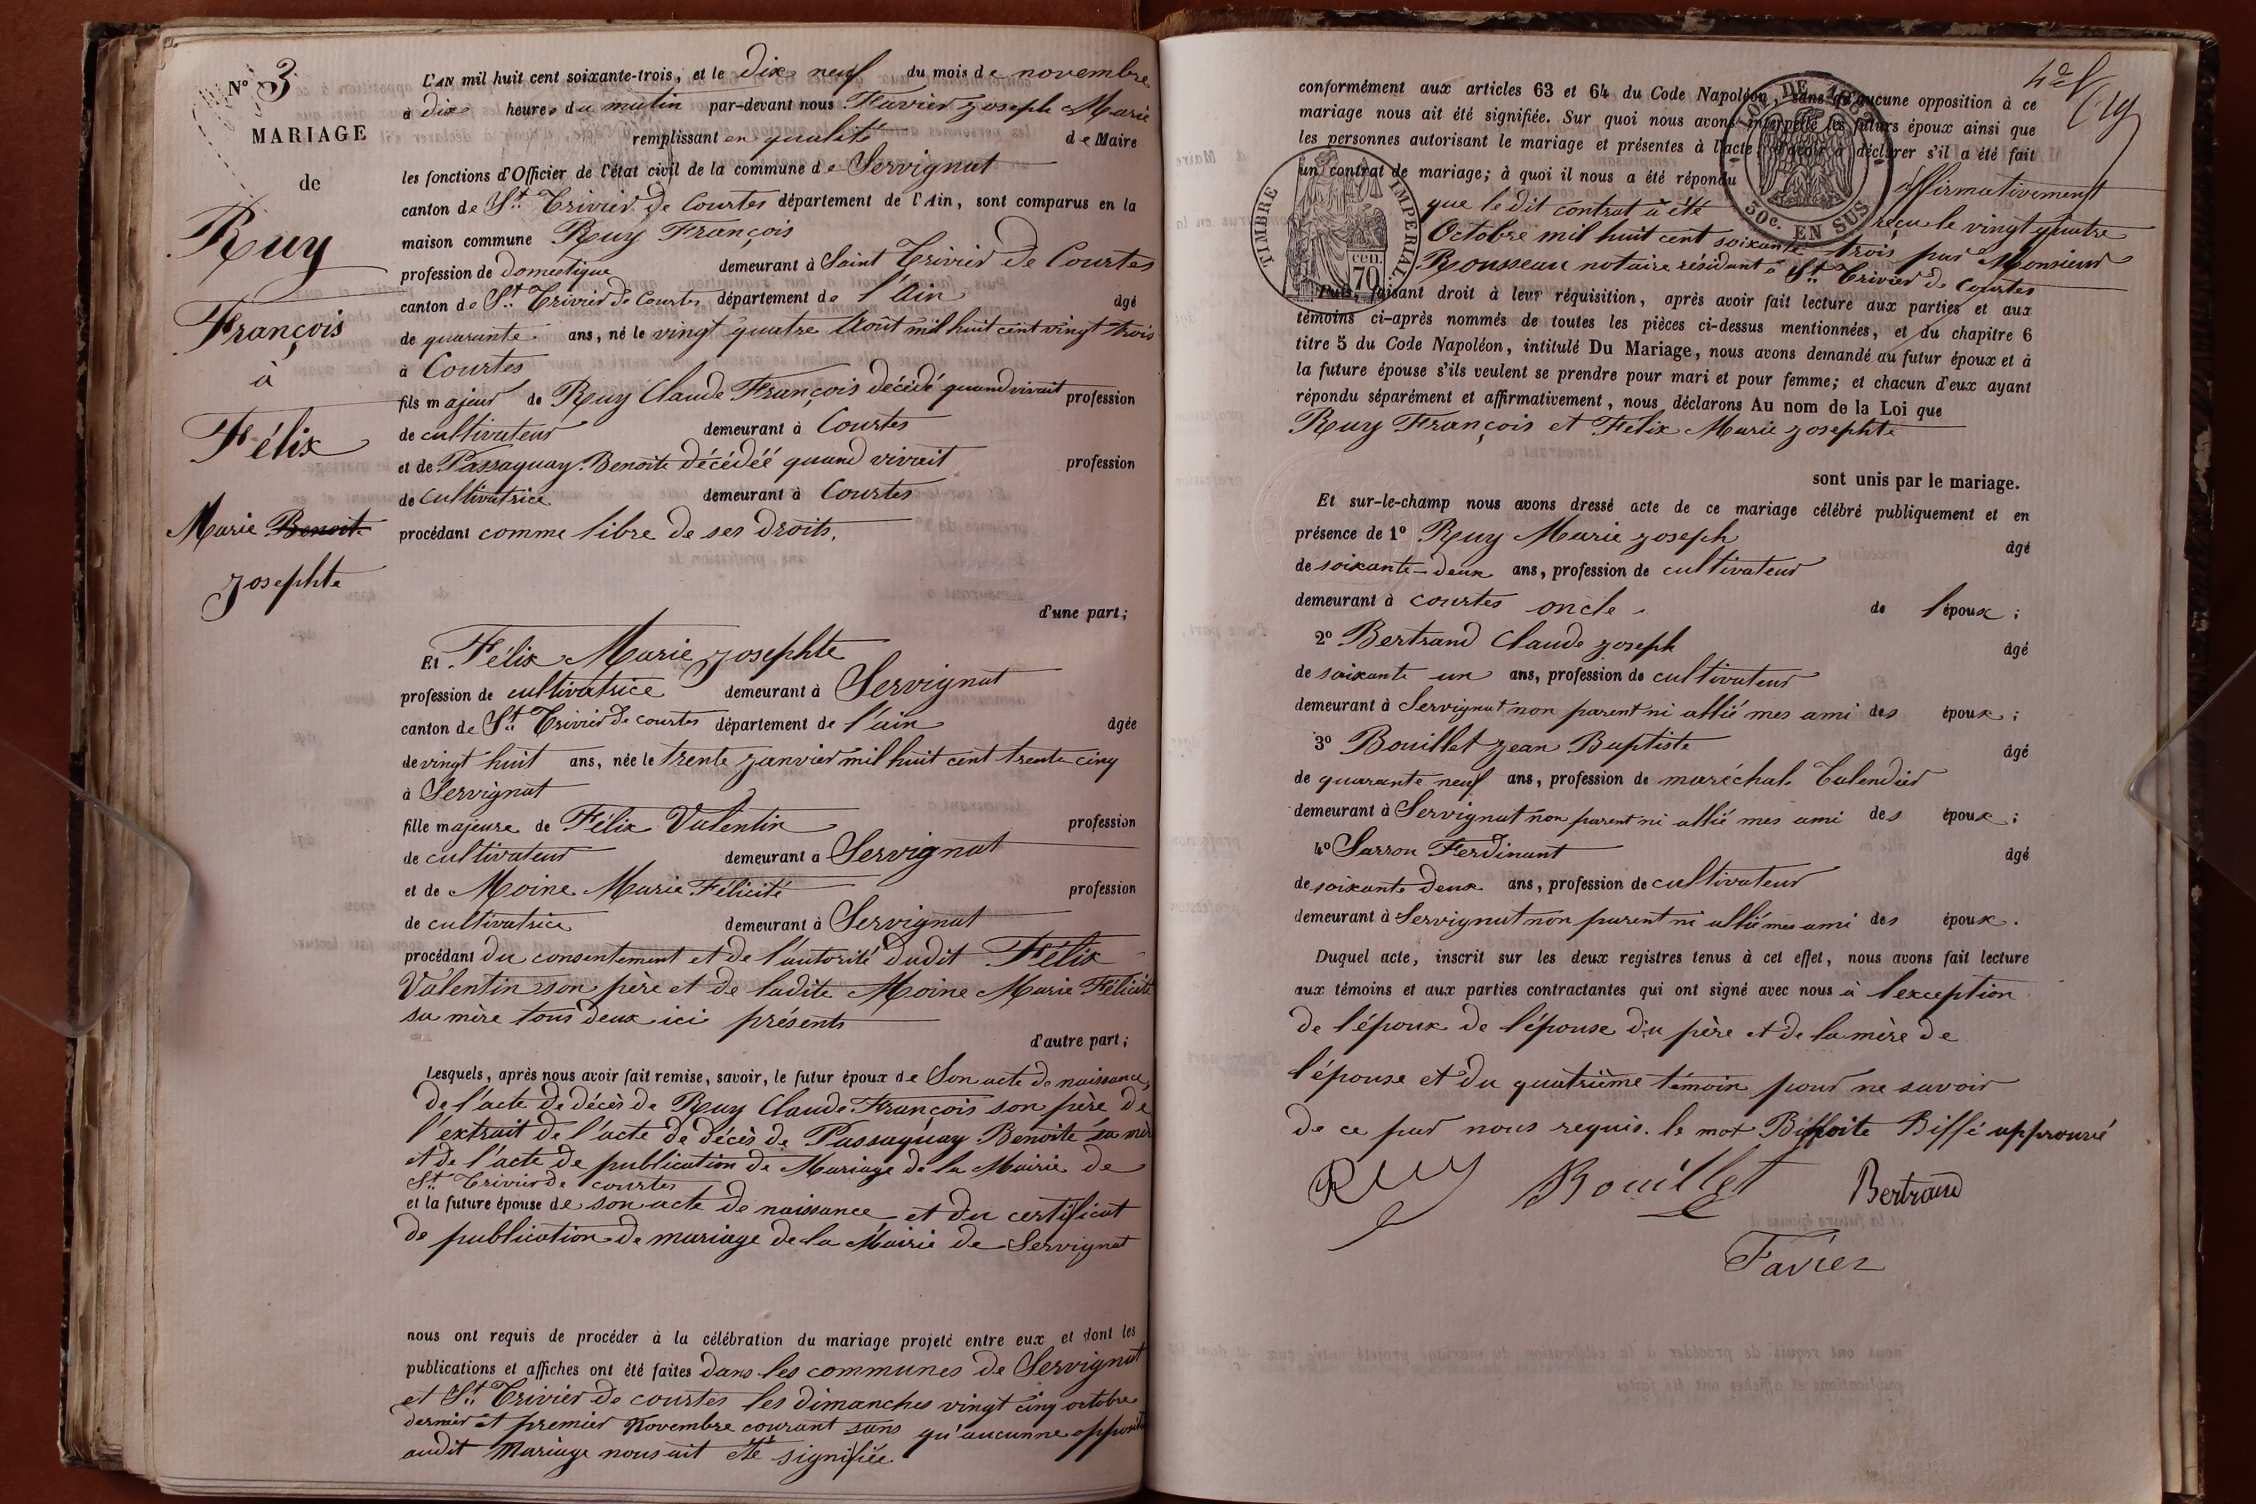 N° 3
MARIAGE
de
Ruy
François
à
Félix
Marie Benoite
Josephte
L'AN mil huit cent soixante-trois, et le dix neuf du mois de novembre
à dix heures du matin par-devant nous Favier Joseph Marie
remplissant en qualité de Maire
les fonctions d'Officier de l'état civil de la commune de Servignat
canton de St. Trivier de Courtes département de l'Ain, sont comparus en la
maison commune Ruy François
profession de domestique demeurant à Saint Trivier de Courtes
canton de St. Trivier de Courtes département de l'Ain âgé
de quarante ans, né le vingt quatre Août mil huit cent vingt trois
à Courtes
fils majeur de Ruy Claude François décédé quand vivait profession
de cultivateur demeurant à Courtes
et de Passaquay Benoite décédéé quand vivait profession
de cultivatrice demeurant à Courtes
procédant comme libre de ses droits.
d'une part;
Et Félix Marie Josephte
profession de cultivatrice demeurant à Servignat
canton de St. Trivier de courtes département de l'ain âgée
de vingt huit ans, née le trente janvier mil huit cent trente cinq
à Servignat
fille majeure de Félix Valentin profession
de cultivateur demeurant à Servignat
et de Moine Marie Félicité profession
de cultivatrice demeurant à Servignat
procédant du consentement et de l'autorité dudit Félix
Valentin son père et de ladite Moine Marie Félicité
sa mère tous deux ici présents
d'autre part;
Lesquels, après nous avoir fait remise, savoir, le futur époux de Son acte de naissance,
de l'acte de décès de Ruy Claude François son père de
l'extrait de l'acte de décès de Passaquay Benoite sa mère
et de l'acte de publication de Mariage de la Mairie de
St. Trivier de courtes
et la future épouse de son acte de naissance et du certificat
de publication de mariage de la Mairie de Servignat
nous ont requis de procéder à la célébration du mariage projeté entre eux et dont les
publications et affiches ont été faites dans les communes de Servignat
et St. Trivier de courtes les dimanches vingt cinq octobre
dernier et premier Novembre courant sans qu'aucunne opposition
audit Mariage nous ait été signifiée
conformément aux articles 63 et 64 du Code Napoléon, sans qu'aucune opposition à ce
mariage nous ait été signifiée. Sur quoi nous avons interpellé les futurs époux ainsi que
les personnes autorisant le mariage et présentes à l'acte, d'avoir à déclarer s'il a été fait
un contrat de mariage; à quoi il nous a été répondu affirmativement
que le dit contrat a été reçu le vingt quatre
Octobre mil huit cent soixante trois par Monsieur
Rousseau notaire résidant à St. Trivier de Courtes
TIMBRE IMPERIAL
cen.
70
LOI DE 1862
30c. EN SUS
Puis, faisant droit à leur réquisition, après avoir fait lecture aux parties et aux
témoins ci-après nommés de toutes les pièces ci-dessus mentionnées, et du chapitre 6
titre 5 du Code Napoléon, intitulé Du Mariage, nous avons demandé au futur époux et à
la future épouse s'ils veulent se prendre pour mari et pour femme; et chacun d'eux ayant
répondu séparément et affirmativement, nous déclarons Au nom de la Loi que
Ruy François et Félix Marie Josephte
sont unis par le mariage.
Et sur-le-champ nous avons dressé acte de ce mariage célébré publiquement et en
présence de 1° Ruy Marie Joseph âgé
de soixante-deux ans, profession de cultivateur
demeurant à courtes oncle de l'époux;
2° Bertrand Claude Joseph âgé
de soixante un ans, profession de cultivateur
demeurant à Servignat non parent ni allié mes ami des époux;
3° Bouillet Jean Baptiste âgé
de quarante neuf ans, profession de maréchal Talendier
demeurant à Servignat non parent ni allié mes ami des époux;
4° Sarron Ferdinant âgé
de soixante deux ans, profession de cultivateur
demeurant à Servignat non parent ni allié mes ami des époux.
Duquel acte, inscrit sur les deux registres tenus à cet effet, nous avons fait lecture
aux témoins et aux parties contractantes qui ont signé avec nous à l'exception
de l'époux de l'épouse du père et de la mère de
l'épouse et du quatrième témoin pour ne savoir
de ce par nous requis. le mot Benoite Biffé approuvé
Ruy Bouillet Bertrand
Favier